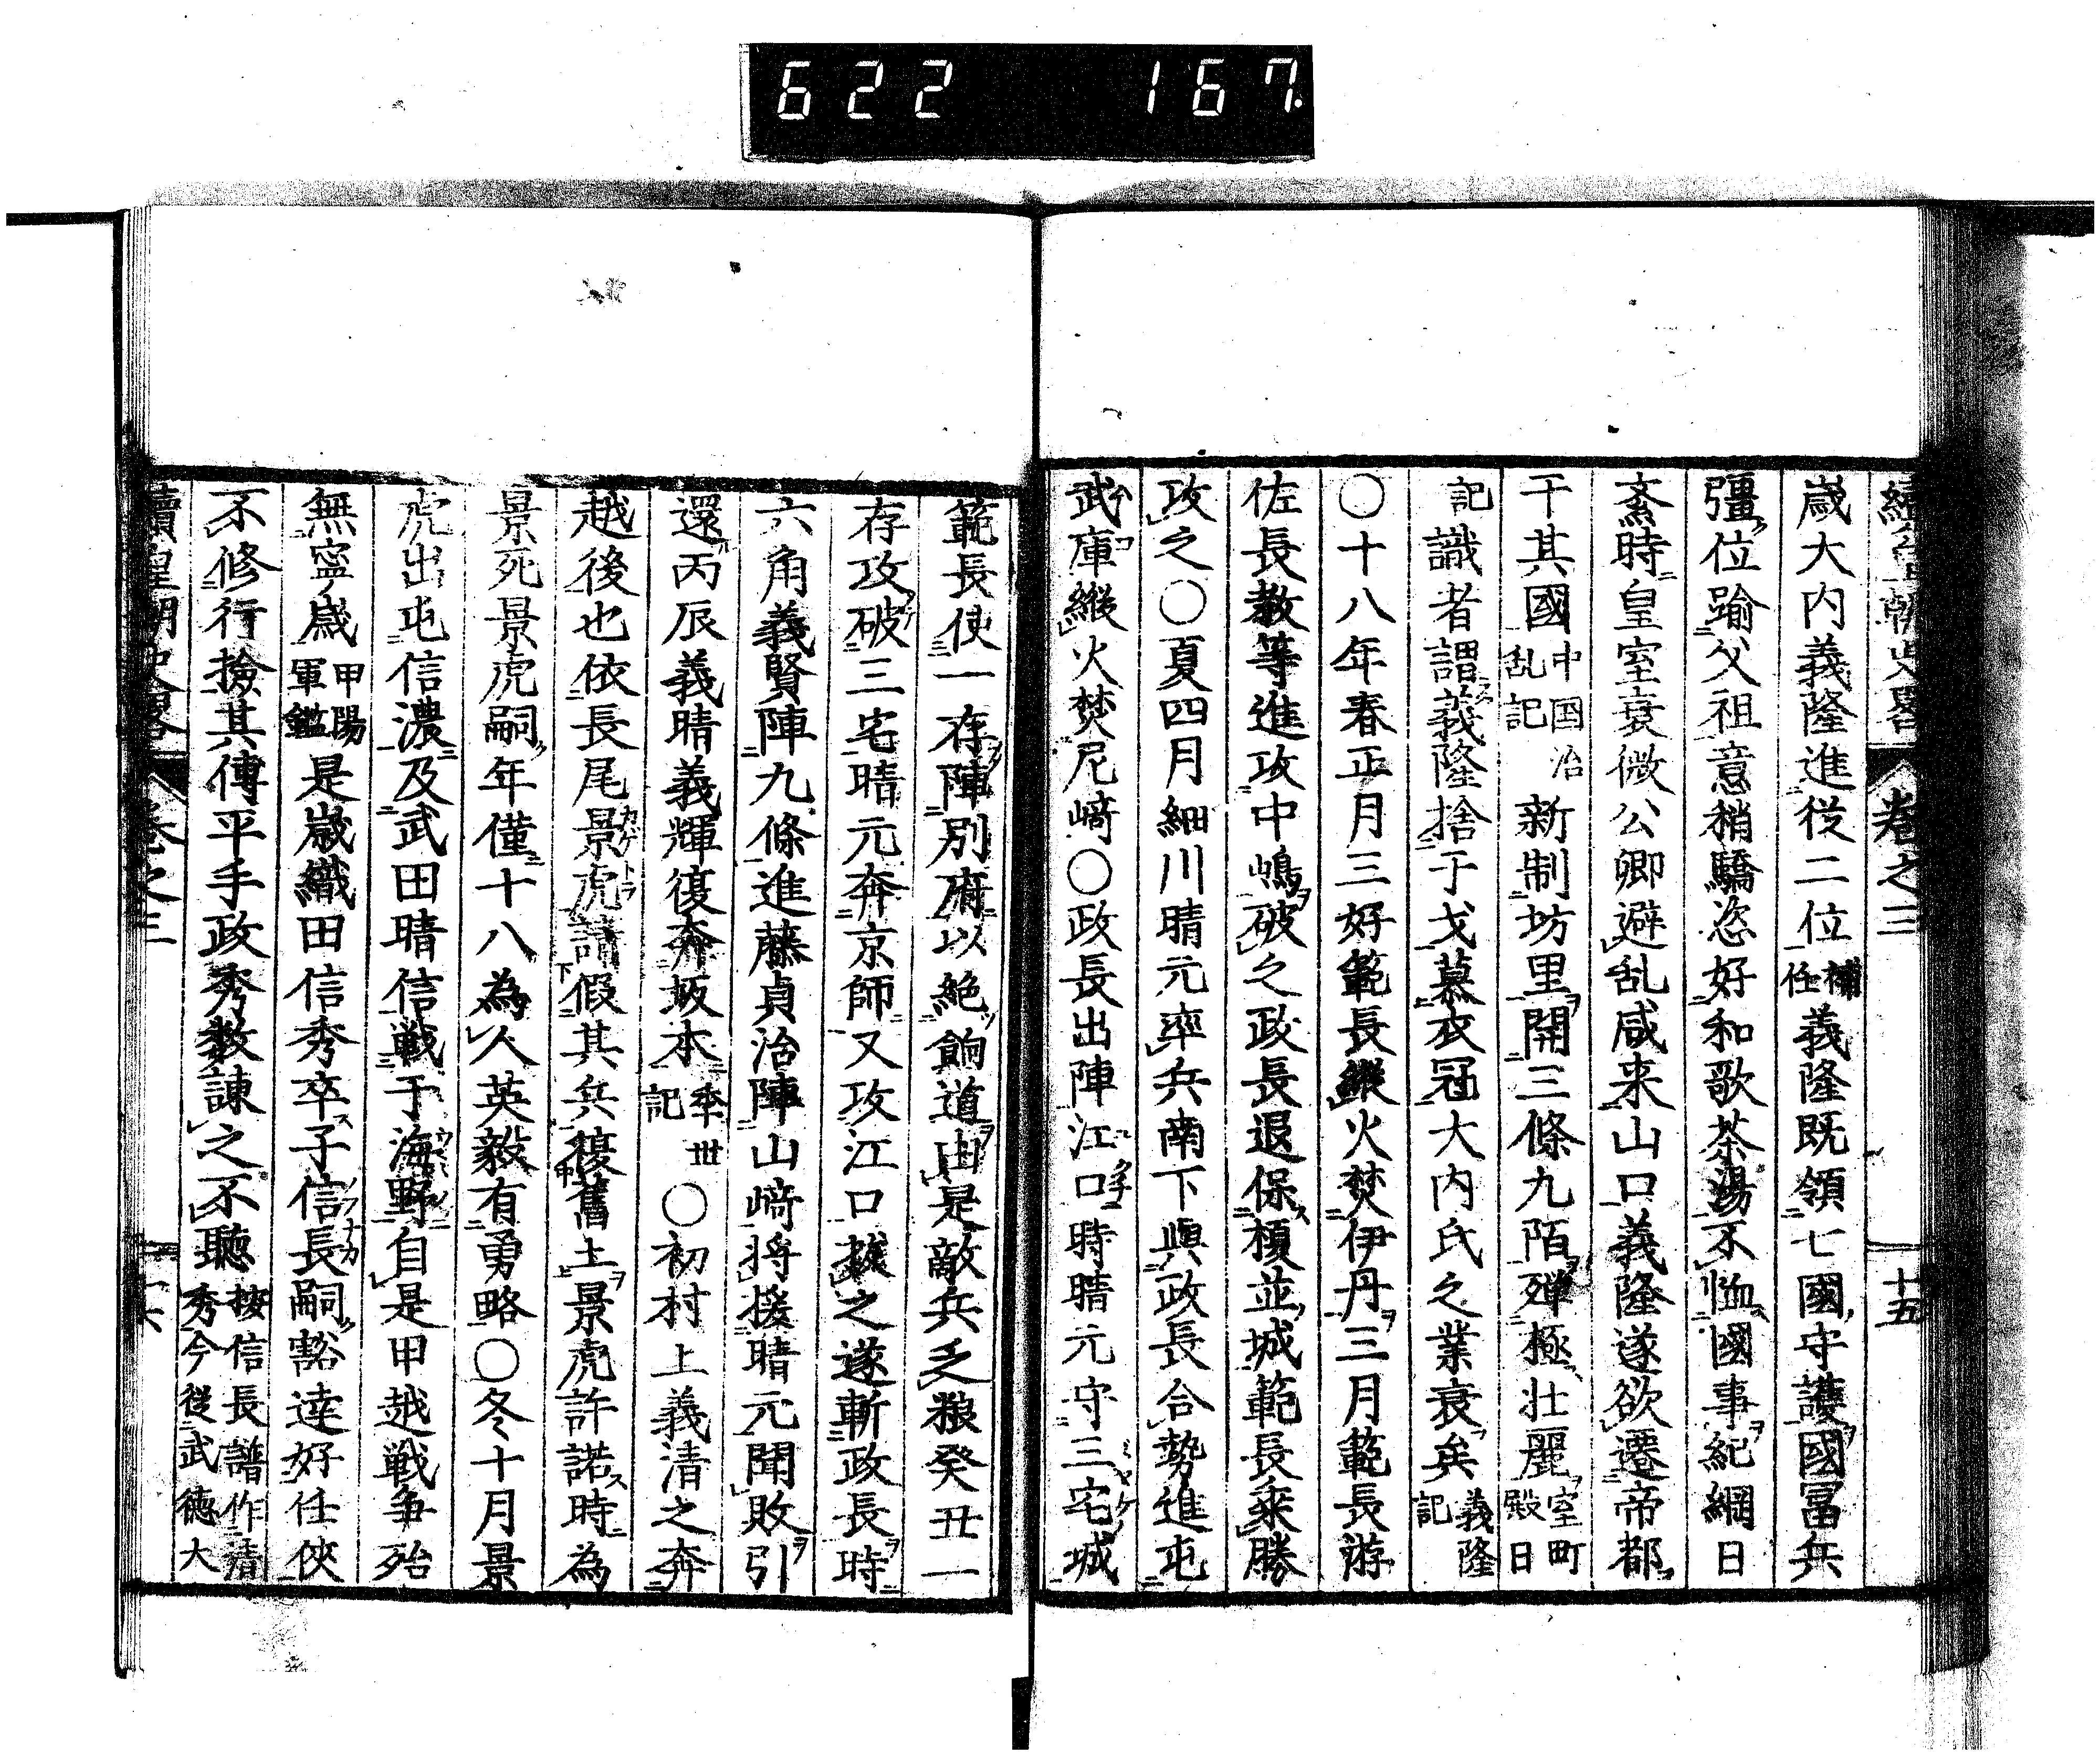 622 167.
續皇朝史畧 卷之三 十五
歳大内義隆進従二位補任義隆既領七國守護國冨兵
彊位踰父祖意稍驕恣好和歌茶湯不恤國事紀綱日
紊時皇室衰微公卿避乱咸来山口義隆遂欲遷帝都
于其國中国治乱記新制坊里開三條九陌殫極壮麗室町殿日
記識者謂義隆捨干戈慕衣冠大内氏之業衰矣義隆記
〇十八年春正月三好範長縦火焚伊丹三月範長游
佐長教等進攻中嶋破之政長退保榎並城範長乘勝
攻之〇夏四月細川晴元率兵南下與政長合勢進屯
武庫縦火焚尼﨑〇政長出陣江口時晴元守三宅城
範長使一存陣別府以絶餉道由是敵兵乏粮癸丑一
存攻破三宅晴元奔京師又攻江口拔之遂斬政長時
六角義賢陣九條進藤貞治陣山﨑将援晴元聞敗引
還丙辰義晴義輝復奔坂本季世記〇初村上義清之奔
越後也依長尾景虎請假其兵復舊土景虎許諾時為
景死景虎嗣年僅十八為人英毅有勇略〇冬十月景
虎出屯信濃及武田晴信戦于海野自是甲越戦争殆
無寧歳甲陽軍鑑是歳織田信秀卒子信長嗣豁達好任侠
不修行撿其傅平手政秀数諌之不聽按信長譜作清秀今従武徳大
續皇朝史畧 卷之三